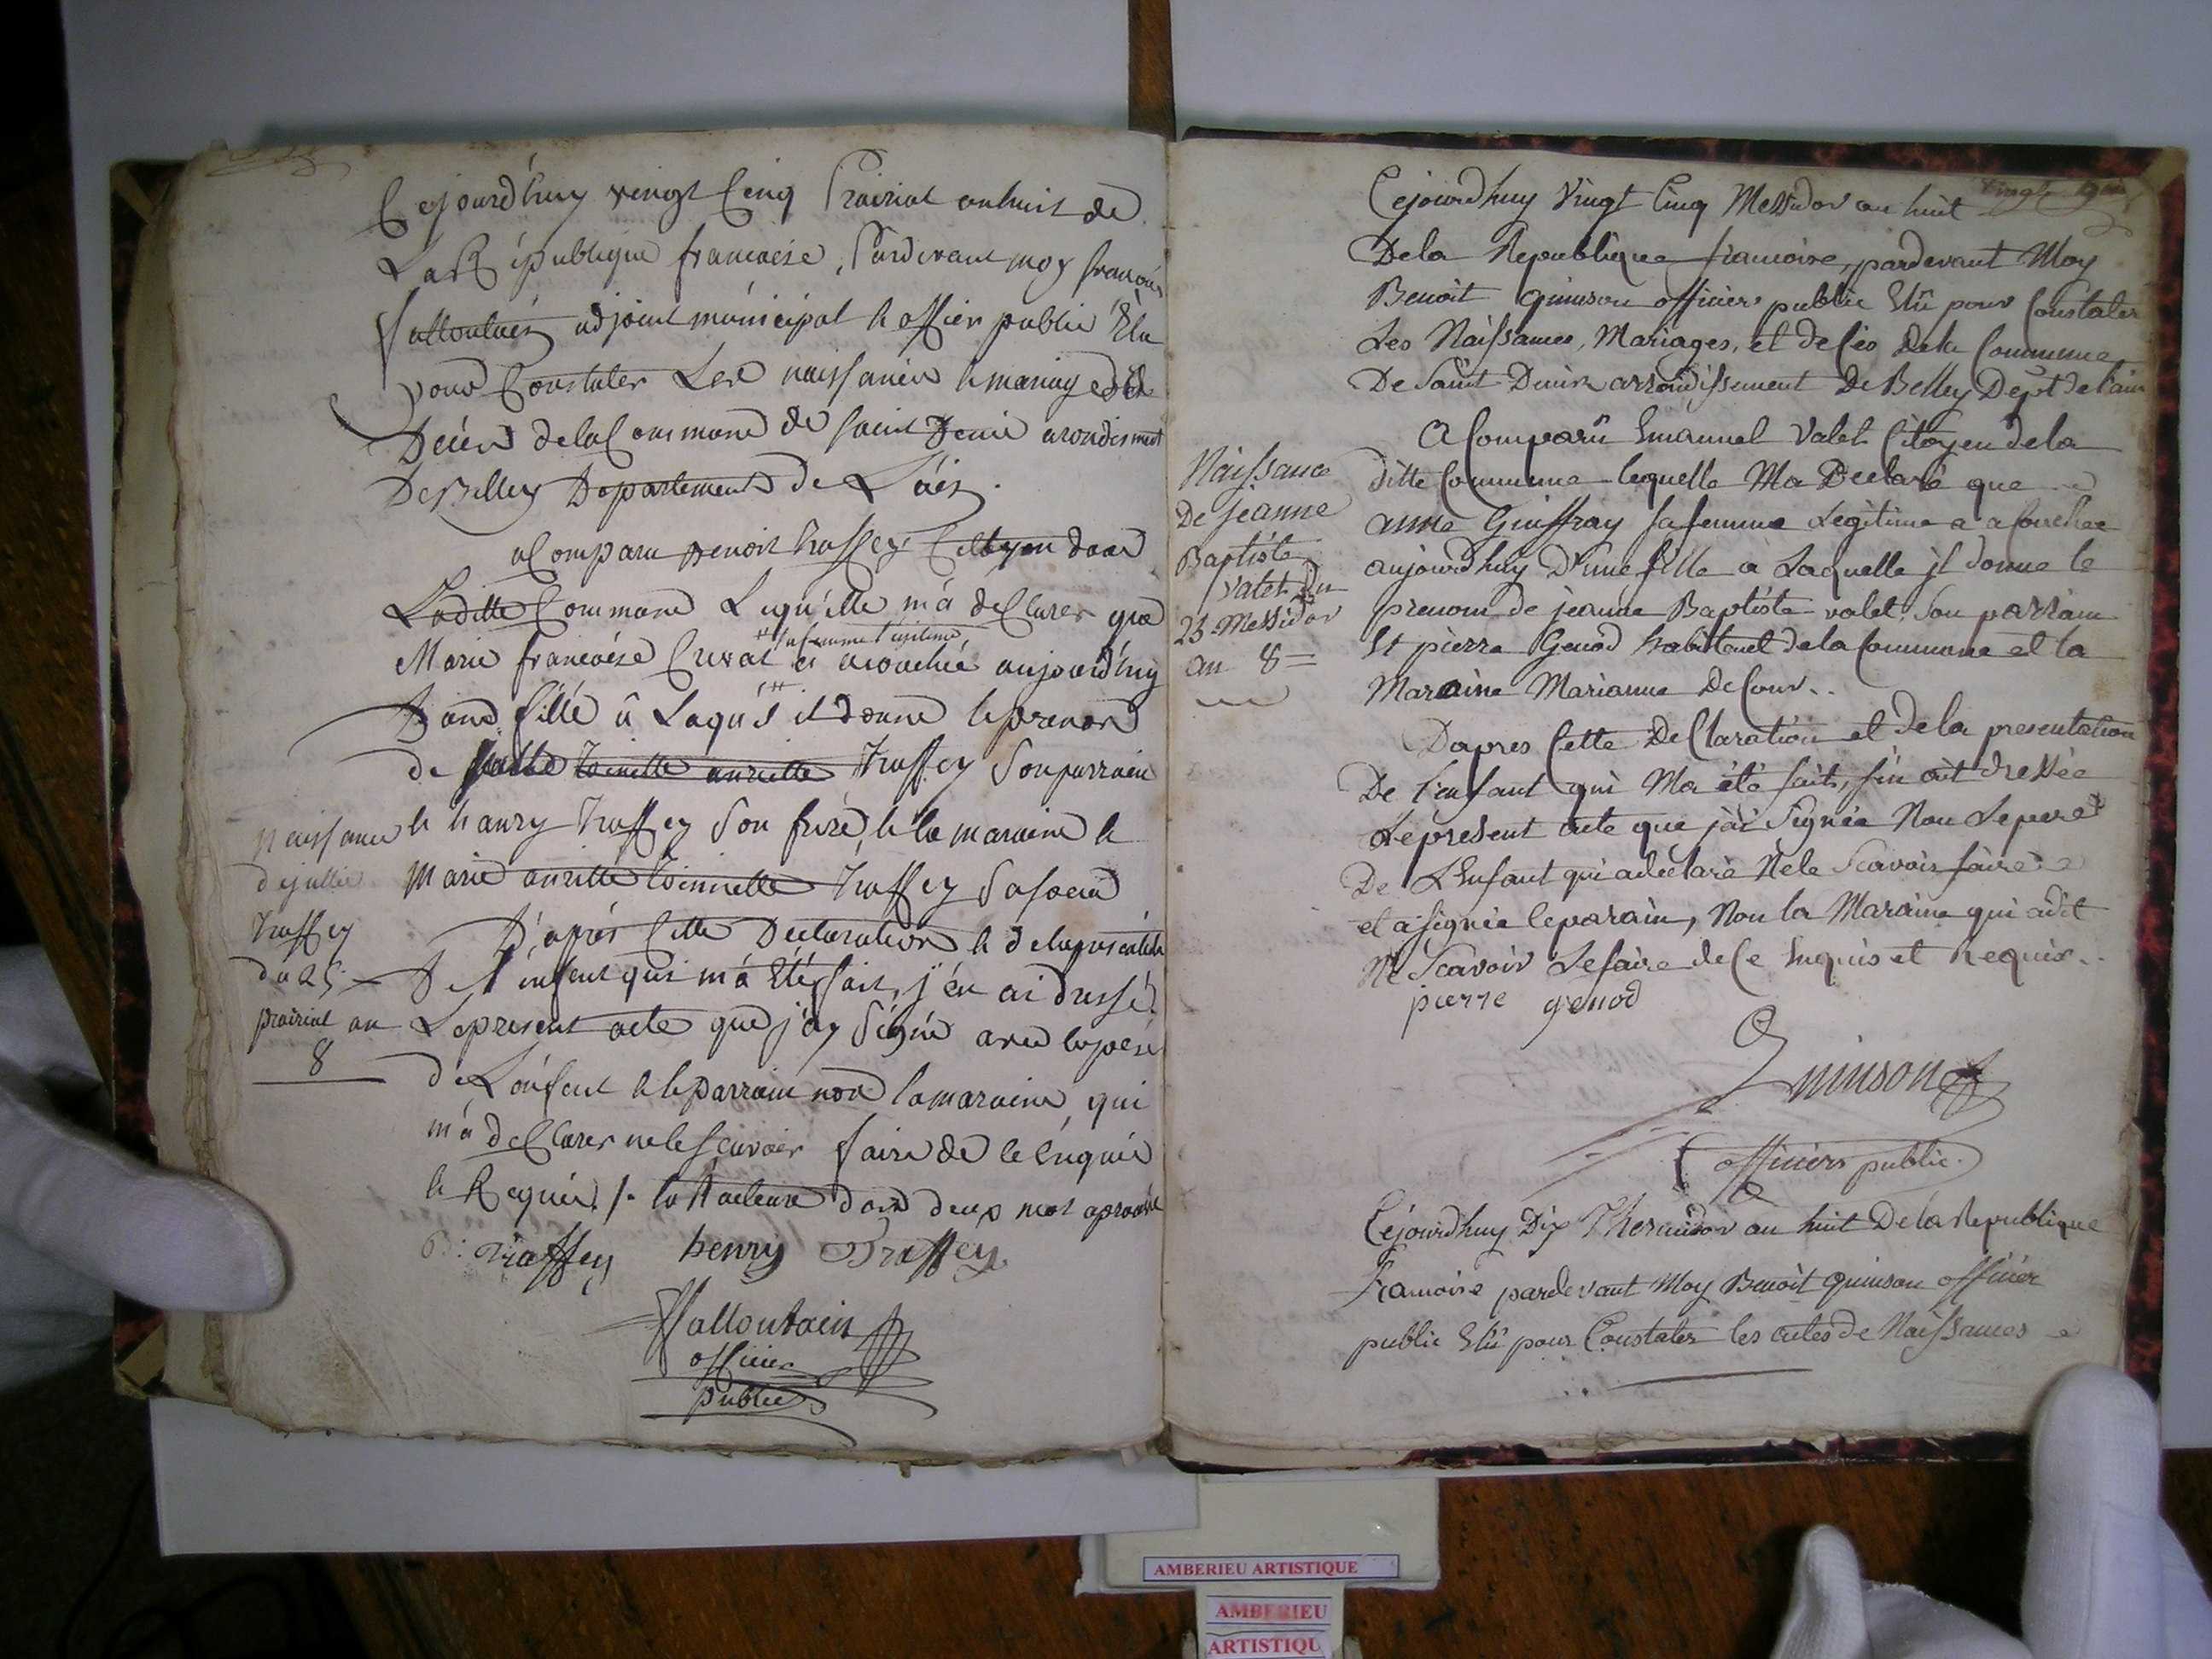 Cejourd'huy vengt Cenq Prairial anhuit de
La République francaise, Pardevant moy francois
fallontain adjoint municipal & offier public Elu
pour Constater Les naissances & mariage &
Deces dela Commune de saint Denis arondisment
De Belley Departement de L'ain.
a Comparu benoit traffey Citoyen dans
Laditte Commune Lequelle m'a déClarer que
#sa femme légitime
Marie francaise Cuzat # et acouchée aujourd'huy
D'une fillé à Laquel il donne le prenom
de Traffey son parrain
& hanry traffey son frere, & la maraine &
Marie anriette toinnette traffey sa soeur
D'après Cette Déclaration & de la presentation
De l'enfent qui m'a été fait, j'en ai dressé
Le present acte que j'ay Signé avec le père
de L'enfent & le parrain non la maraine, qui
m'a déClarer ne le scavoir faire de ce enquis
& Requis /. la dans deux mot aprouvé
Naissance
de jullie
traffey
du 25
prairial an
8
B: traffey henry Traffey
fallontain
officier
public
Cejourdhuy Vingt Cinq Messidor an huit
De la Republique francoise, pardevant Moy
Benoit quinson officier public Elû pour Constater
Les Naissances, Mariages, et deCès dela Commune
De Saint Denis arrondissement De Belley Dept de l'ain
A Comparû Emanuel Valet Citoyen de la
ditte Commune lequelle Ma Declaré que
anne Guiffray sa femme Legitime a acouchee
aujourdhuy D'une fille a Laquelle jl donne le
prenom de jeanne Baptiste valet. Son parrain
Et pierre Genod habitant de la Commune et la
Maraine Marianne DeCour..
Naissance
De jeanne
Baptiste
Valet Du
25 Messidor
an 8
Dapres Cette DeClaration et de la presentation
De l'enfant qui Ma été fait, j'en ait dressée
Le present acte que j'ai Signée Non Le pere
De L'Enfant qui a déclaré Ne le Scavoir faire
et a signée le parain, Non la Maraine qui a dit
Ne Scavoir Le faire de Ce Enquis et Requis..
pierre genod
Quinson
officier public.
Cejourdhuy Dix Thermidor an huit De la Republique
Francoise pardevant Moy Benoit quinson officier
public Elû pour Constater les actes de Naissances
AMBERIEU ARTISTIQUE
AMBERIEU
ARTISTIQU